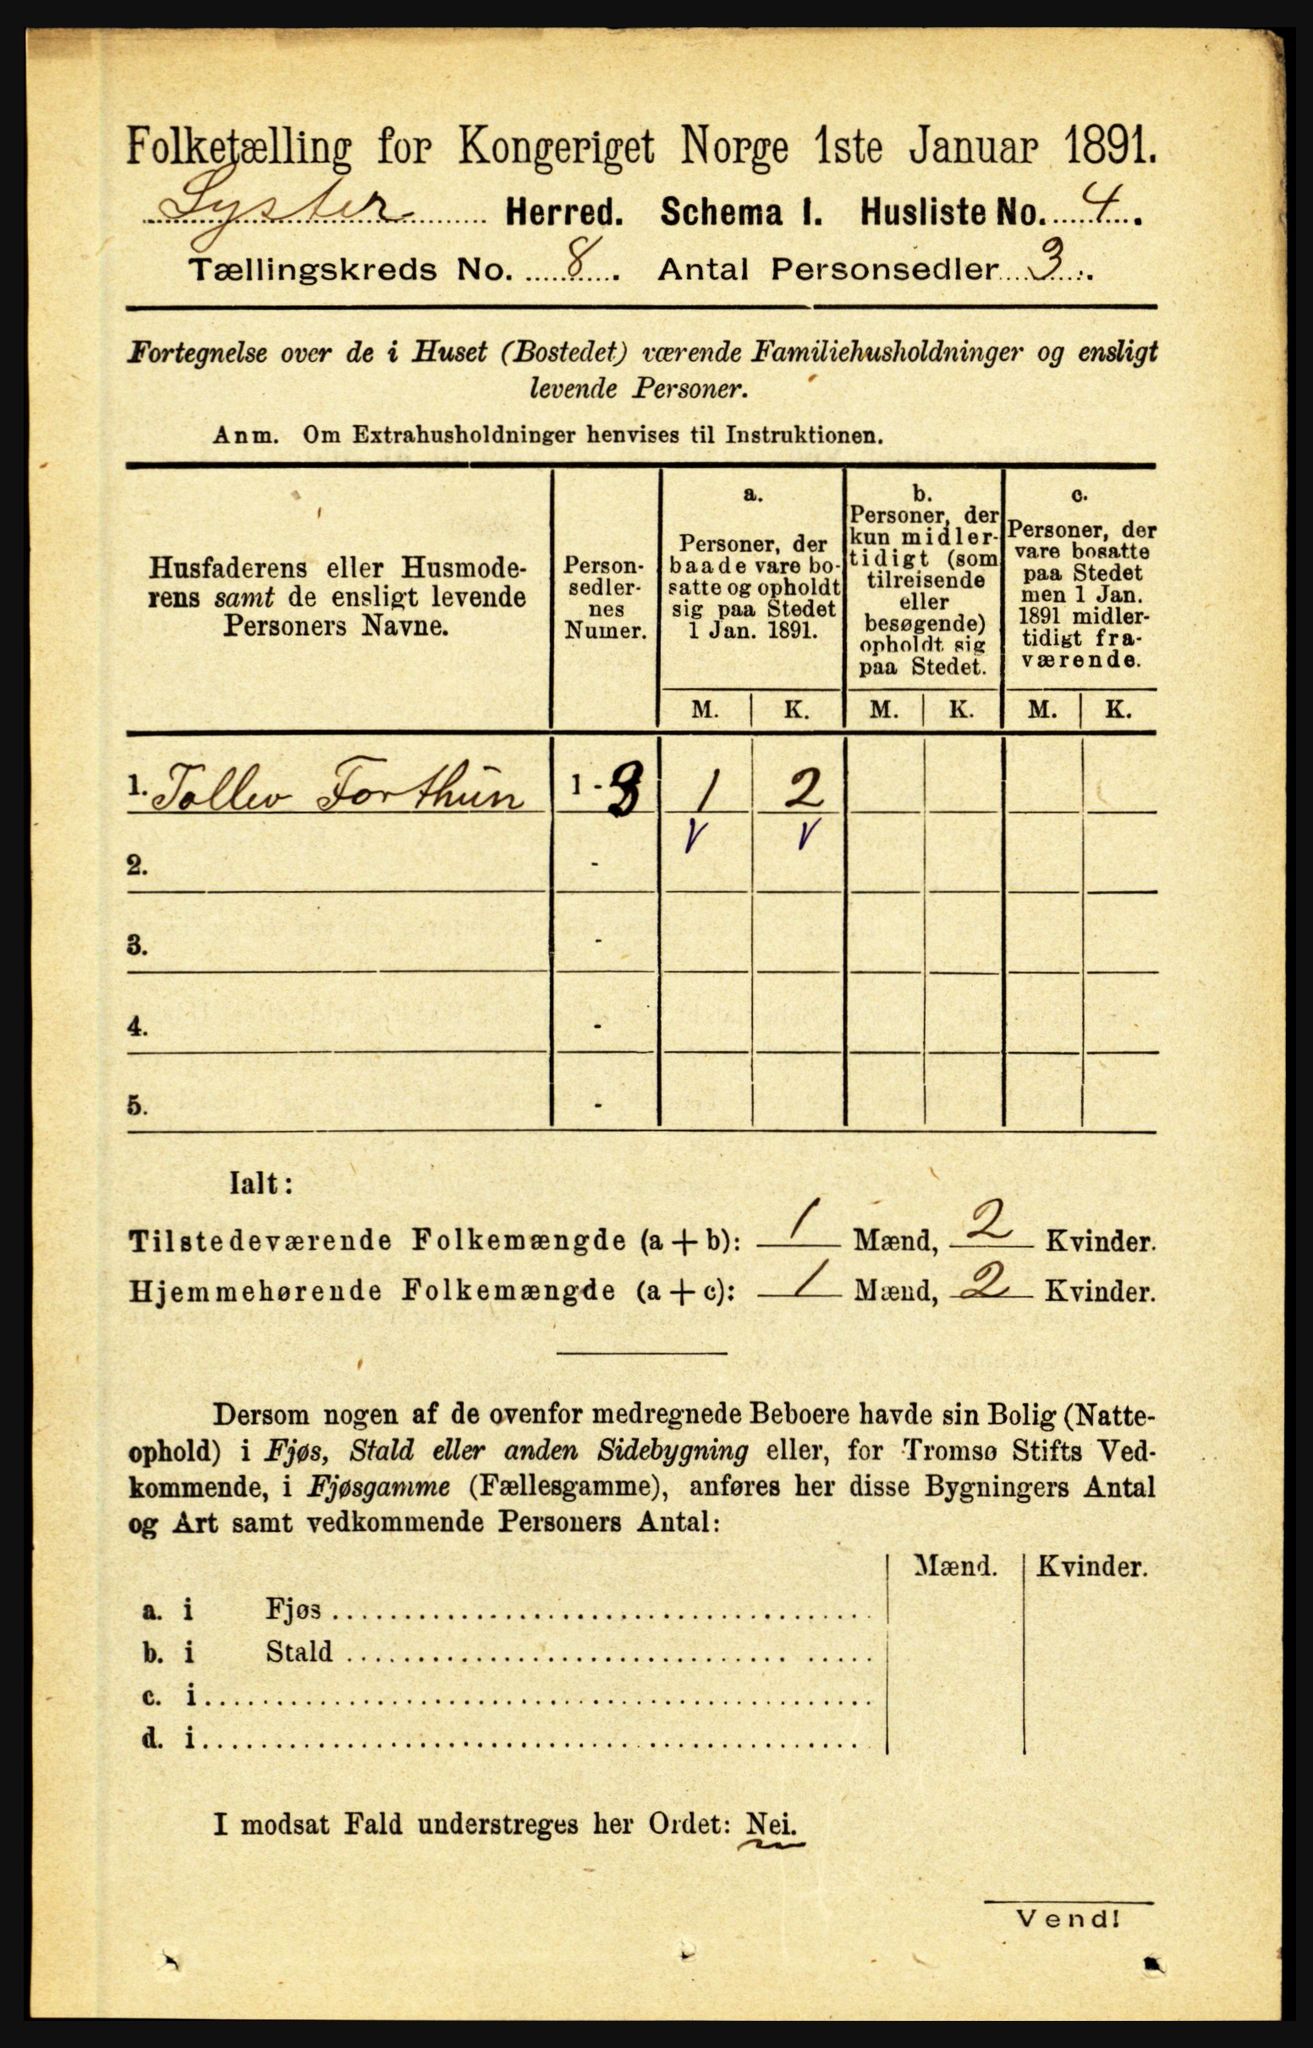 Folketælling for Kongeriget Norge 1ste Januar 1891.
Lyster Herred. Schema I. Husliste No. 4.
Tællingskreds No. 8. Antal Personsedler 3.
Fortegnelse over de i Huset (Bostedet) værende Familiehusholdninger og ensligt
levende Personer.
Anm. Om Extrahusholdninger henvises til Instruktionen.
Husfaderens eller Husmode-
rens samt de ensligt levende
Personers Navne.
Person-
sedler-
nes
Numer.
a.
Personer, der
baade vare bo-
satte og opholdt
sig paa Stedet
1 Jan. 1891.
b.
Personer, der
kun midler-
tidigt (som
tilreisende
eller
besøgende)
opholdt sig
paa Stedet.
c.
Personer, der
vare bosatte
paa Stedet
men 1 Jan.
1891 midler-
tidigt fra-
værende.
M. K. M. K. M. K.
1. Tollev Forthun 1 - 3 1 2
2. -
3. -
4. -
5. -
Ialt:
Tilstedeværende Folkemængde (a + b): 1 Mænd, 2 Kvinder.
Hjemmehørende Folkemængde (a + c): 1 Mænd, 2 Kvinder.
Dersom nogen af de ovenfor medregnede Beboere havde sin Bolig (Natte-
ophold) i Fjøs, Stald eller anden Sidebygning eller, for Tromsø Stifts Ved-
kommende, i Fjøsgamme (Fællesgamme), anføres her disse Bygningers Antal
og Art samt vedkommende Personers Antal:
Mænd. Kvinder.
a. i Fjøs
b. i Stald
c. i
d. i
I modsat Fald understreges her Ordet: Nei.
Vend!